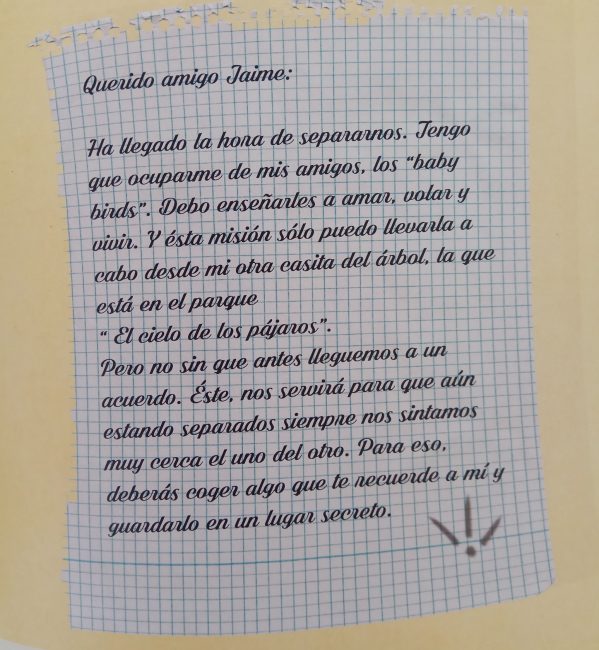 Querido amigo Jaime:
Ha llegado la hora de separarnos. Tengo
que ocuparme de mis amigos, los “baby
birds”. Debo enseñarles a amar, volar y
vivir. Y ésta misión sólo puedo llevarla a
cabo desde mi otra casita del árbol, la que
está en el parque
“ El cielo de los pájaros”.
Pero no sin que antes lleguemos a un
acuerdo. Éste, nos servirá para que aún
estando separados siempre nos sintamos
muy cerca el uno del otro. Para eso,
deberás coger algo que te recuerde a mí y
guardarlo en un lugar secreto.